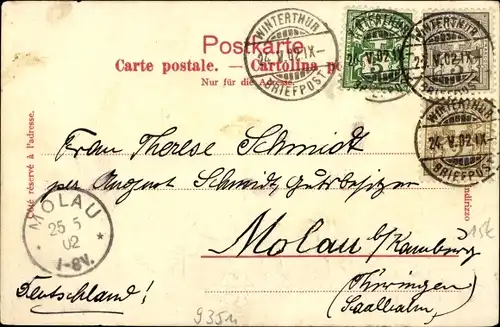 Postkarte
Carte postale. — Cartolina po
Nur für die Adresse.
WINTERTHUR
24. V. 02. IX–
BRIEFPOST
WINTERTHUR
24. V. 02. IX–
WINTERTHUR
24. V. 02. IX–
BRIEFPOST
WINTERTHUR
24. V. 02. IX–
BRIEFPOST
Côté réservé à l'adresse.
indirizzo
Frau Therese Schmidt
per August Schmidt, Gutsbesitzer
MOLAU
25 5
02
7-8V.
Molau b/Kamburg
(Thüringen)
(Saalbahn)
Deutschland!
15€